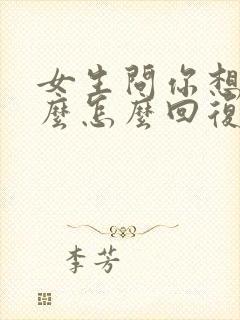 女生問你想
麼怎麼回復
李芳